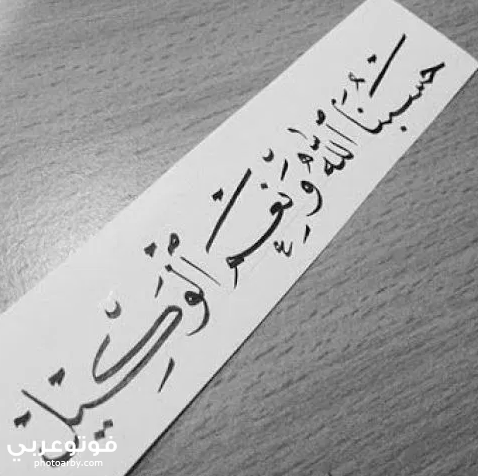 حسبنا الله ونعم الوكيل
فوتوعربي
photoarby.com